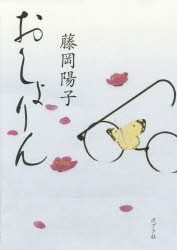 藤岡陽子
おしょりん
ポプラ社